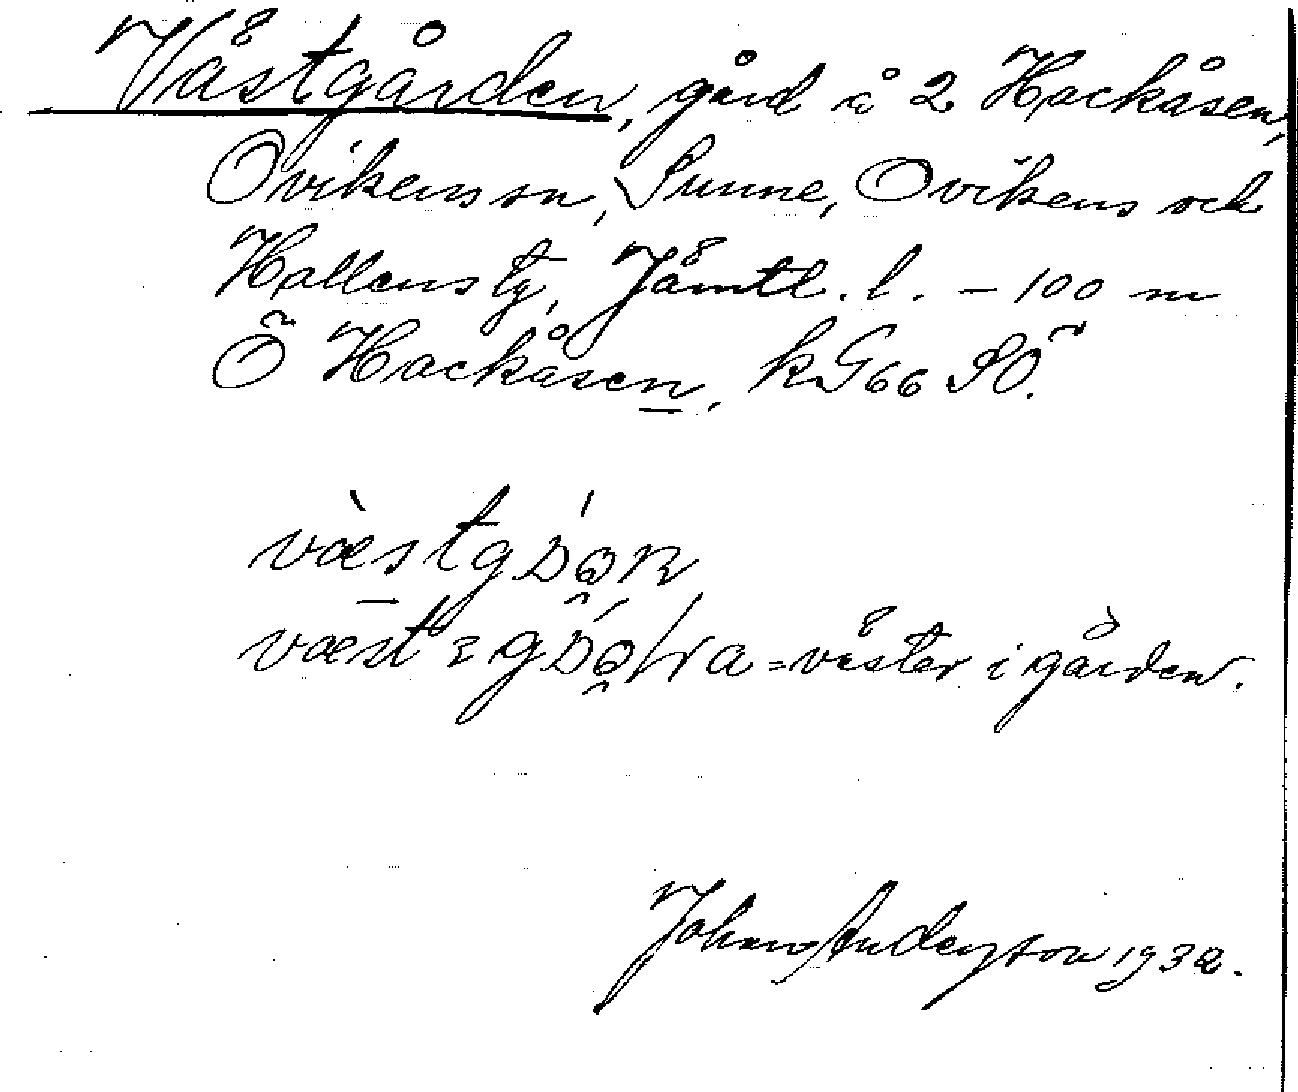 Västgården, gård å 2 Hackåsen,
Ovikens sn, Sunne, Ovikens och
Hallens tg, Jämtl. l. – 100 m
Ö Hackåsen, kG66 SÖ.
= väster i gården.
Johan Andersson 1932.